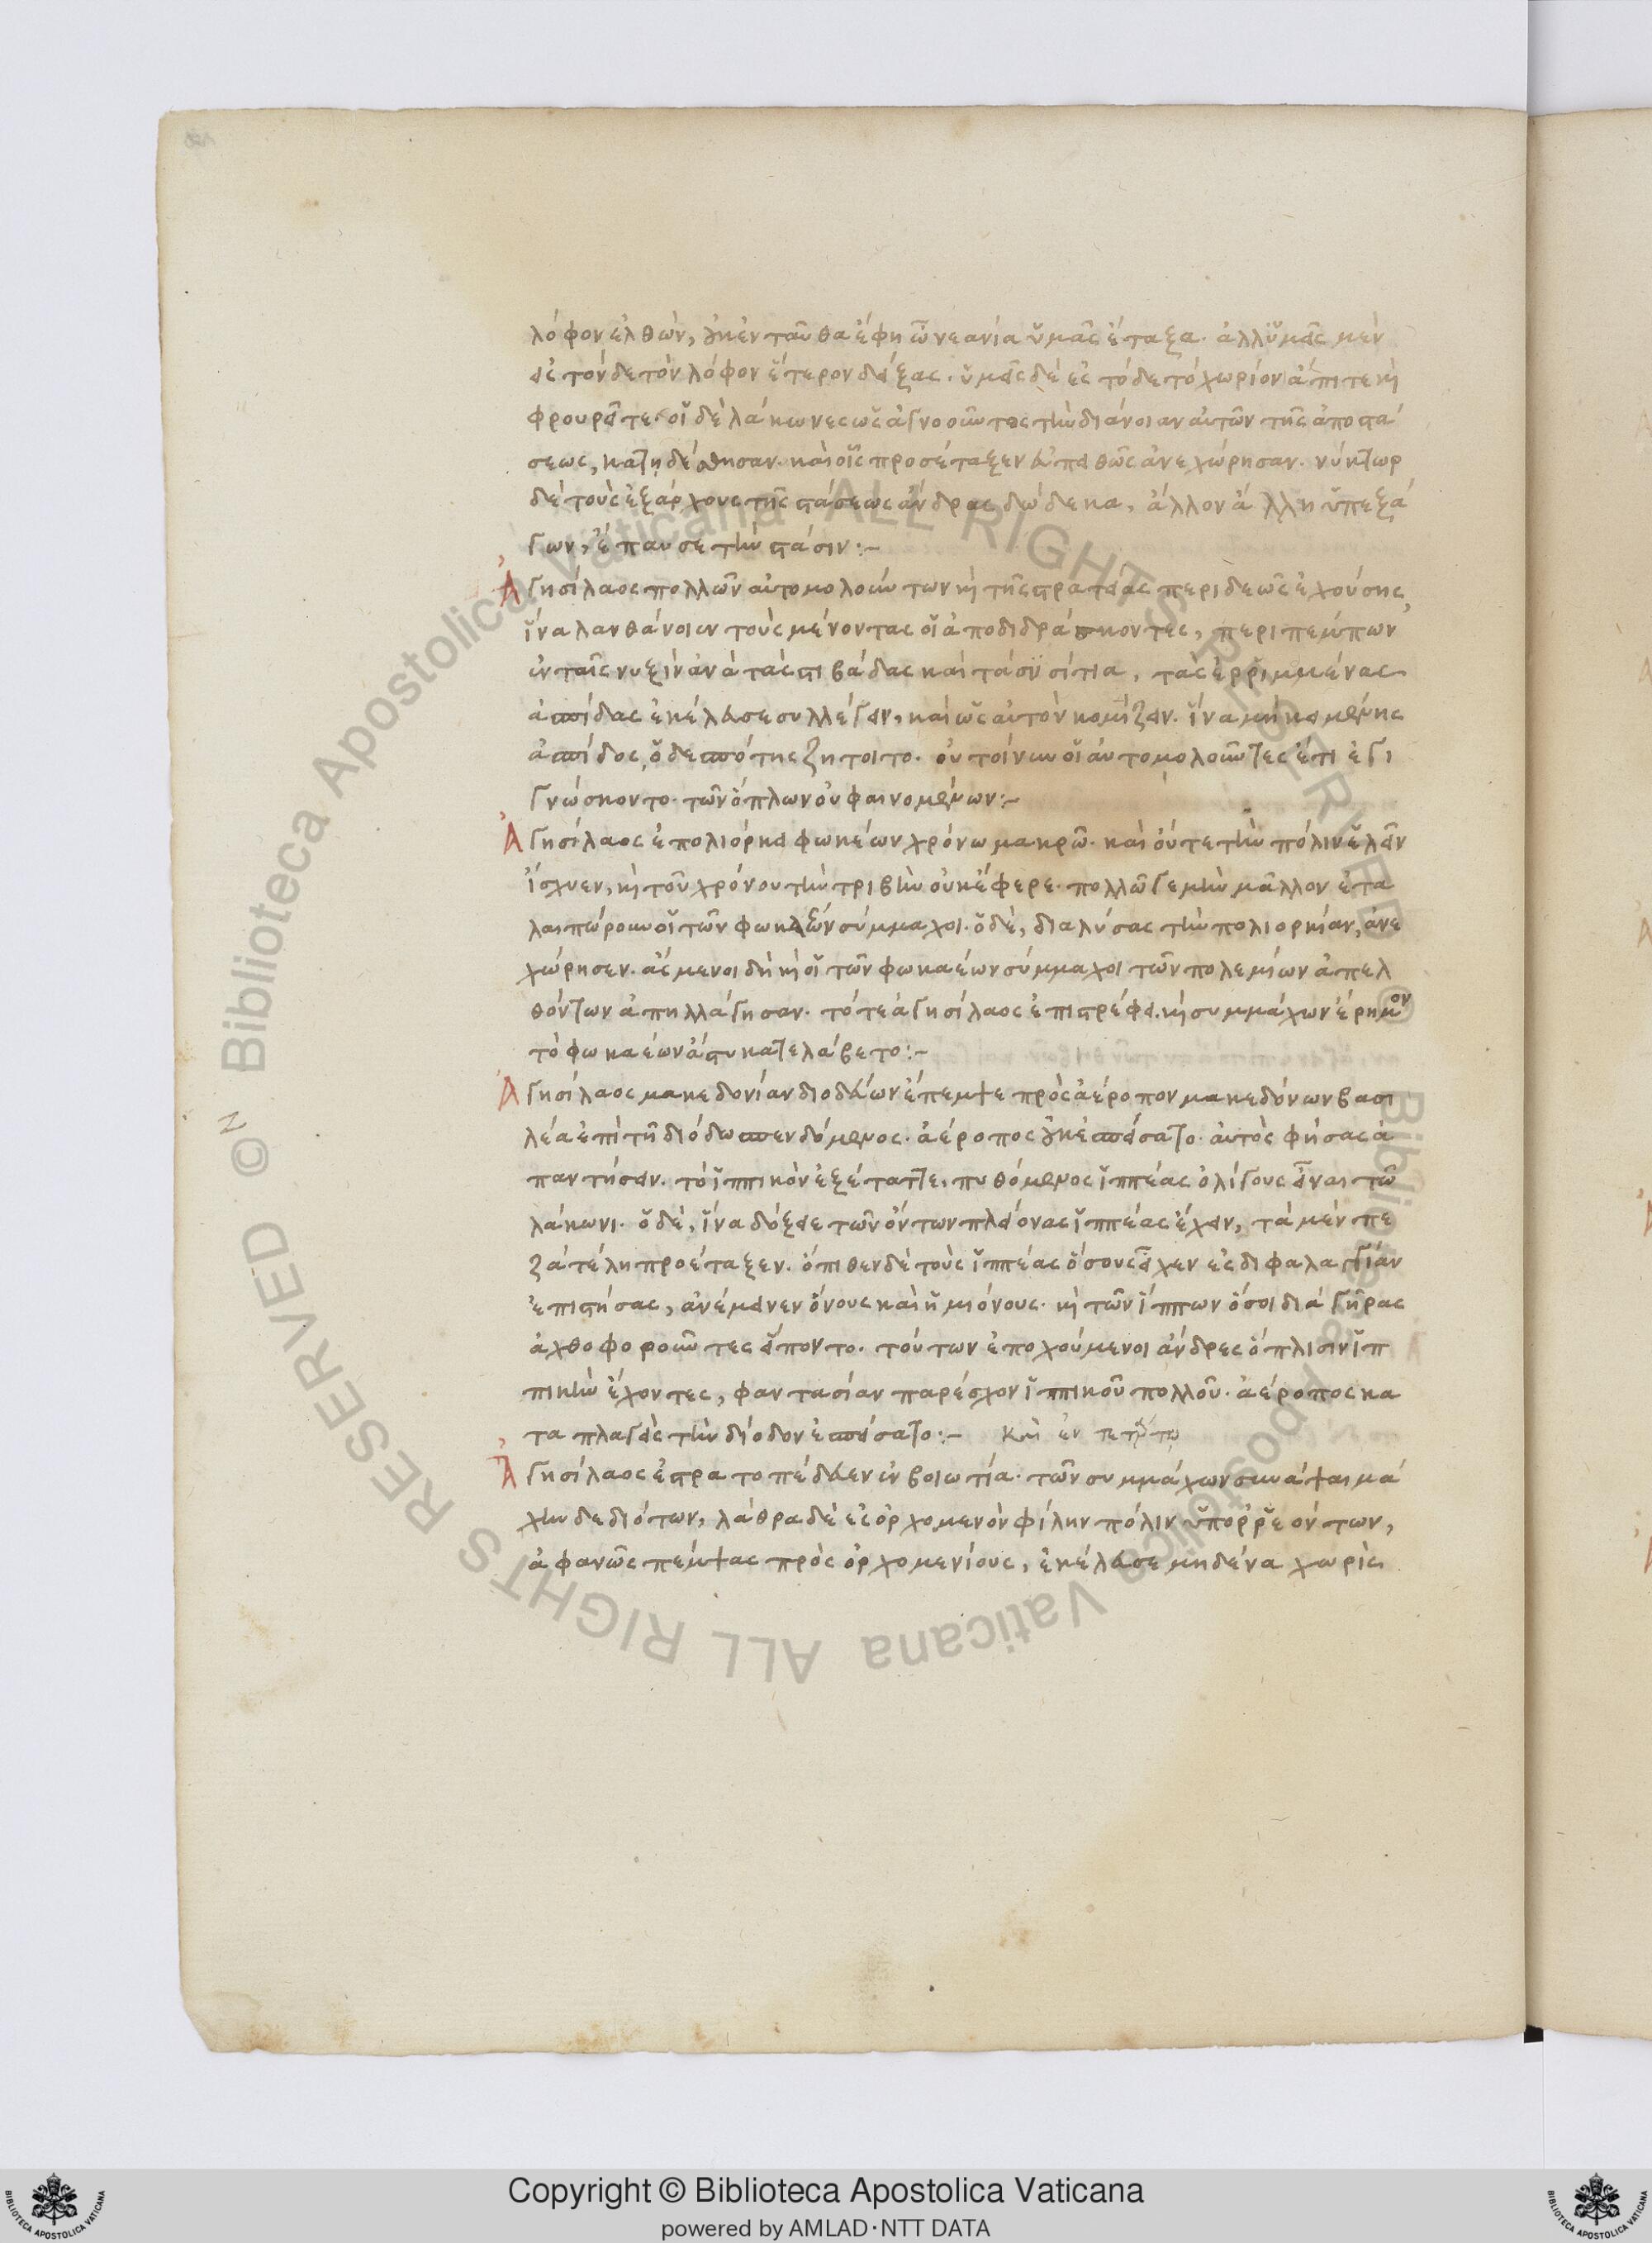 λόφον ἐλθὼν, οὐκ ἐνταῦθα ἔφη ὦ νεανία ὑμᾶς ἔταξα. ἀλλ' ὑμᾶς μὲν
εἰς τόνδε τὸν λόφον ἕτερον δείξας. ὑμᾶς δὲ εἰς τόδε τὸ χωρίον ἄπιτε καὶ
φρουρεῖτε. οἱ δὲ λάκωνες ὡς ἀγνοοῦντος τὴν διάνοιαν αὐτῶν τῆς ἀποστά
σεως, κατηδέσθησαν. καὶ οἷς προσέταξεν εὐπειθῶς ἀνεχώρησαν. νύκτωρ
δὲ τοὺς ἐξάρχους τῆς στάσεως ἄνδρας δώδεκα, ἄλλον ἄλλη ὑπεξά
γων, ἔπαυσε τὴν στάσιν:-
Ἀγησίλαος πολλῶν αὐτομολούντων καὶ τῆς στρατείας περιδεῶς ἐχούσης,
ἵνα λανθάνοιεν τοὺς μένοντας οἱ ἀποδιδράσκοντες, περιπέμπων
ἐν ταῖς νυξὶν ἀνὰ τὰς στιβάδας καὶ τὰ συσσίτια, τὰς ἐρριμμένας
ἀσπίδας ἐκέλευσε συλλέγειν, καὶ ὡς αὐτὸν κομίζειν. ἵνα μὴ κειμένης
ἀσπίδος, ὁ δεσπότης ζητοῖτο. οὐ τοίνυν οἱ αὐτομολοῦντες ἔτι ἐγι
γνώσκοντο. τῶν ὅπλων οὐ φαινομένων:-
Ἀγησίλαος ἐπολιόρκει φωκέων χρόνω μακρῶ. καὶ οὔτε τὴν πόλιν ἑλεῖν
ἴσχυεν, καὶ τοῦ χρόνου τὴν τριβὴν οὐκ ἔφερε. πολλῶ γε μὴν μᾶλλον ἐτα
λαιπώρουν οἱ τῶν φωκαέων σύμμαχοι. ὁ δὲ, διαλύσας τὴν πολιορκίαν, ἀνε
χώρησεν. ἄσμενοι δὴ καὶ οἱ τῶν φωκαέων σύμμαχοι τῶν πολεμίων ἀπελ
θόντων ἀπηλλάγησαν. τότε ἀγησίλαος ἐπιστρέφει. καὶ συμμάχων ἔρημον
τὸ φωκαέων ἄστυ κατελάβετο:-
Ἀγησίλαος μακεδονίαν διοδεύων ἔπεμψε πρὸς ἀέροπον μακεδόνων βασι
λέα ἐπὶ τῆ διόδω σπενδόμενος. ἀέροπος οὐκ ἐσπείσατο. αὐτὸς φήσας ἀ
παντήσειν. τὸ ἱππικὸν ἐξέταττε. πυθόμενος ἱππέας ὀλίγους εἶναι τῶ
λάκωνι. ὁ δὲ, ἵνα δόξειε τῶν ὄντων πλείονας ἱππέας ἔχειν, τὰ μὲν πε
ζὰ τέλη προέταξεν. ὄπισθεν δὲ τοὺς ἱππέας ὅσους εἶχεν εἰς διφαλαγγίαν
ἐπιστήσας, ἀνέμισγεν ὄνους καὶ ἡμιόνους. καὶ τῶν ἵππων ὅσοι διὰ γῆρας
ἀχθοφοροῦντες εἵποντο. τούτων ἐποχούμενοι ἄνδρες ὅπλισιν ἱπ
πικὴν ἔχοντες, φαντασίαν παρέσχον ἱππικοῦ πολλοῦ. ἀέροπος κα
ταπλαγεὶς τὴν δίοδον ἐσπείσατο:-
Ἀγησίλαος ἐστρατοπέδευεν ἐν βοιωτία. τῶν συμμάχων συνάψαι μά
χην δεδιότων, λάθρα δὲ εἰς ὀρχομενὸν φίλην πόλιν ὑπορρεόντων,
ἀφανῶς πέμψας πρὸς ὀρχομενίους, ἐκέλευσε μηδένα χωρὶς
Copyright © Biblioteca Apostolica Vaticana
powered by AMLAD·NTT DATA